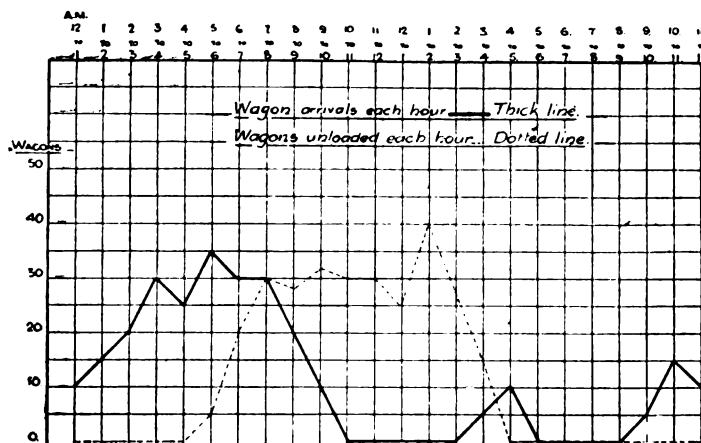 A.M.
12 1 2 3 4 5 6 7 8 9 10 11 12 1 2 3 4 5 6. 7. 8. 9. 10.
to to to to to to to to to to to to to to to to to to to to to to to
1 2 3 4 5 6 7 8 9 10 11 12 1 2 3. 4. 5 6. 7. 8. 9. 10. 11.
Wagon arrivals each hour Thick line.
Wagons unloaded each hour... Dotted line.
WAGONS
50
40
30
20
10
0.